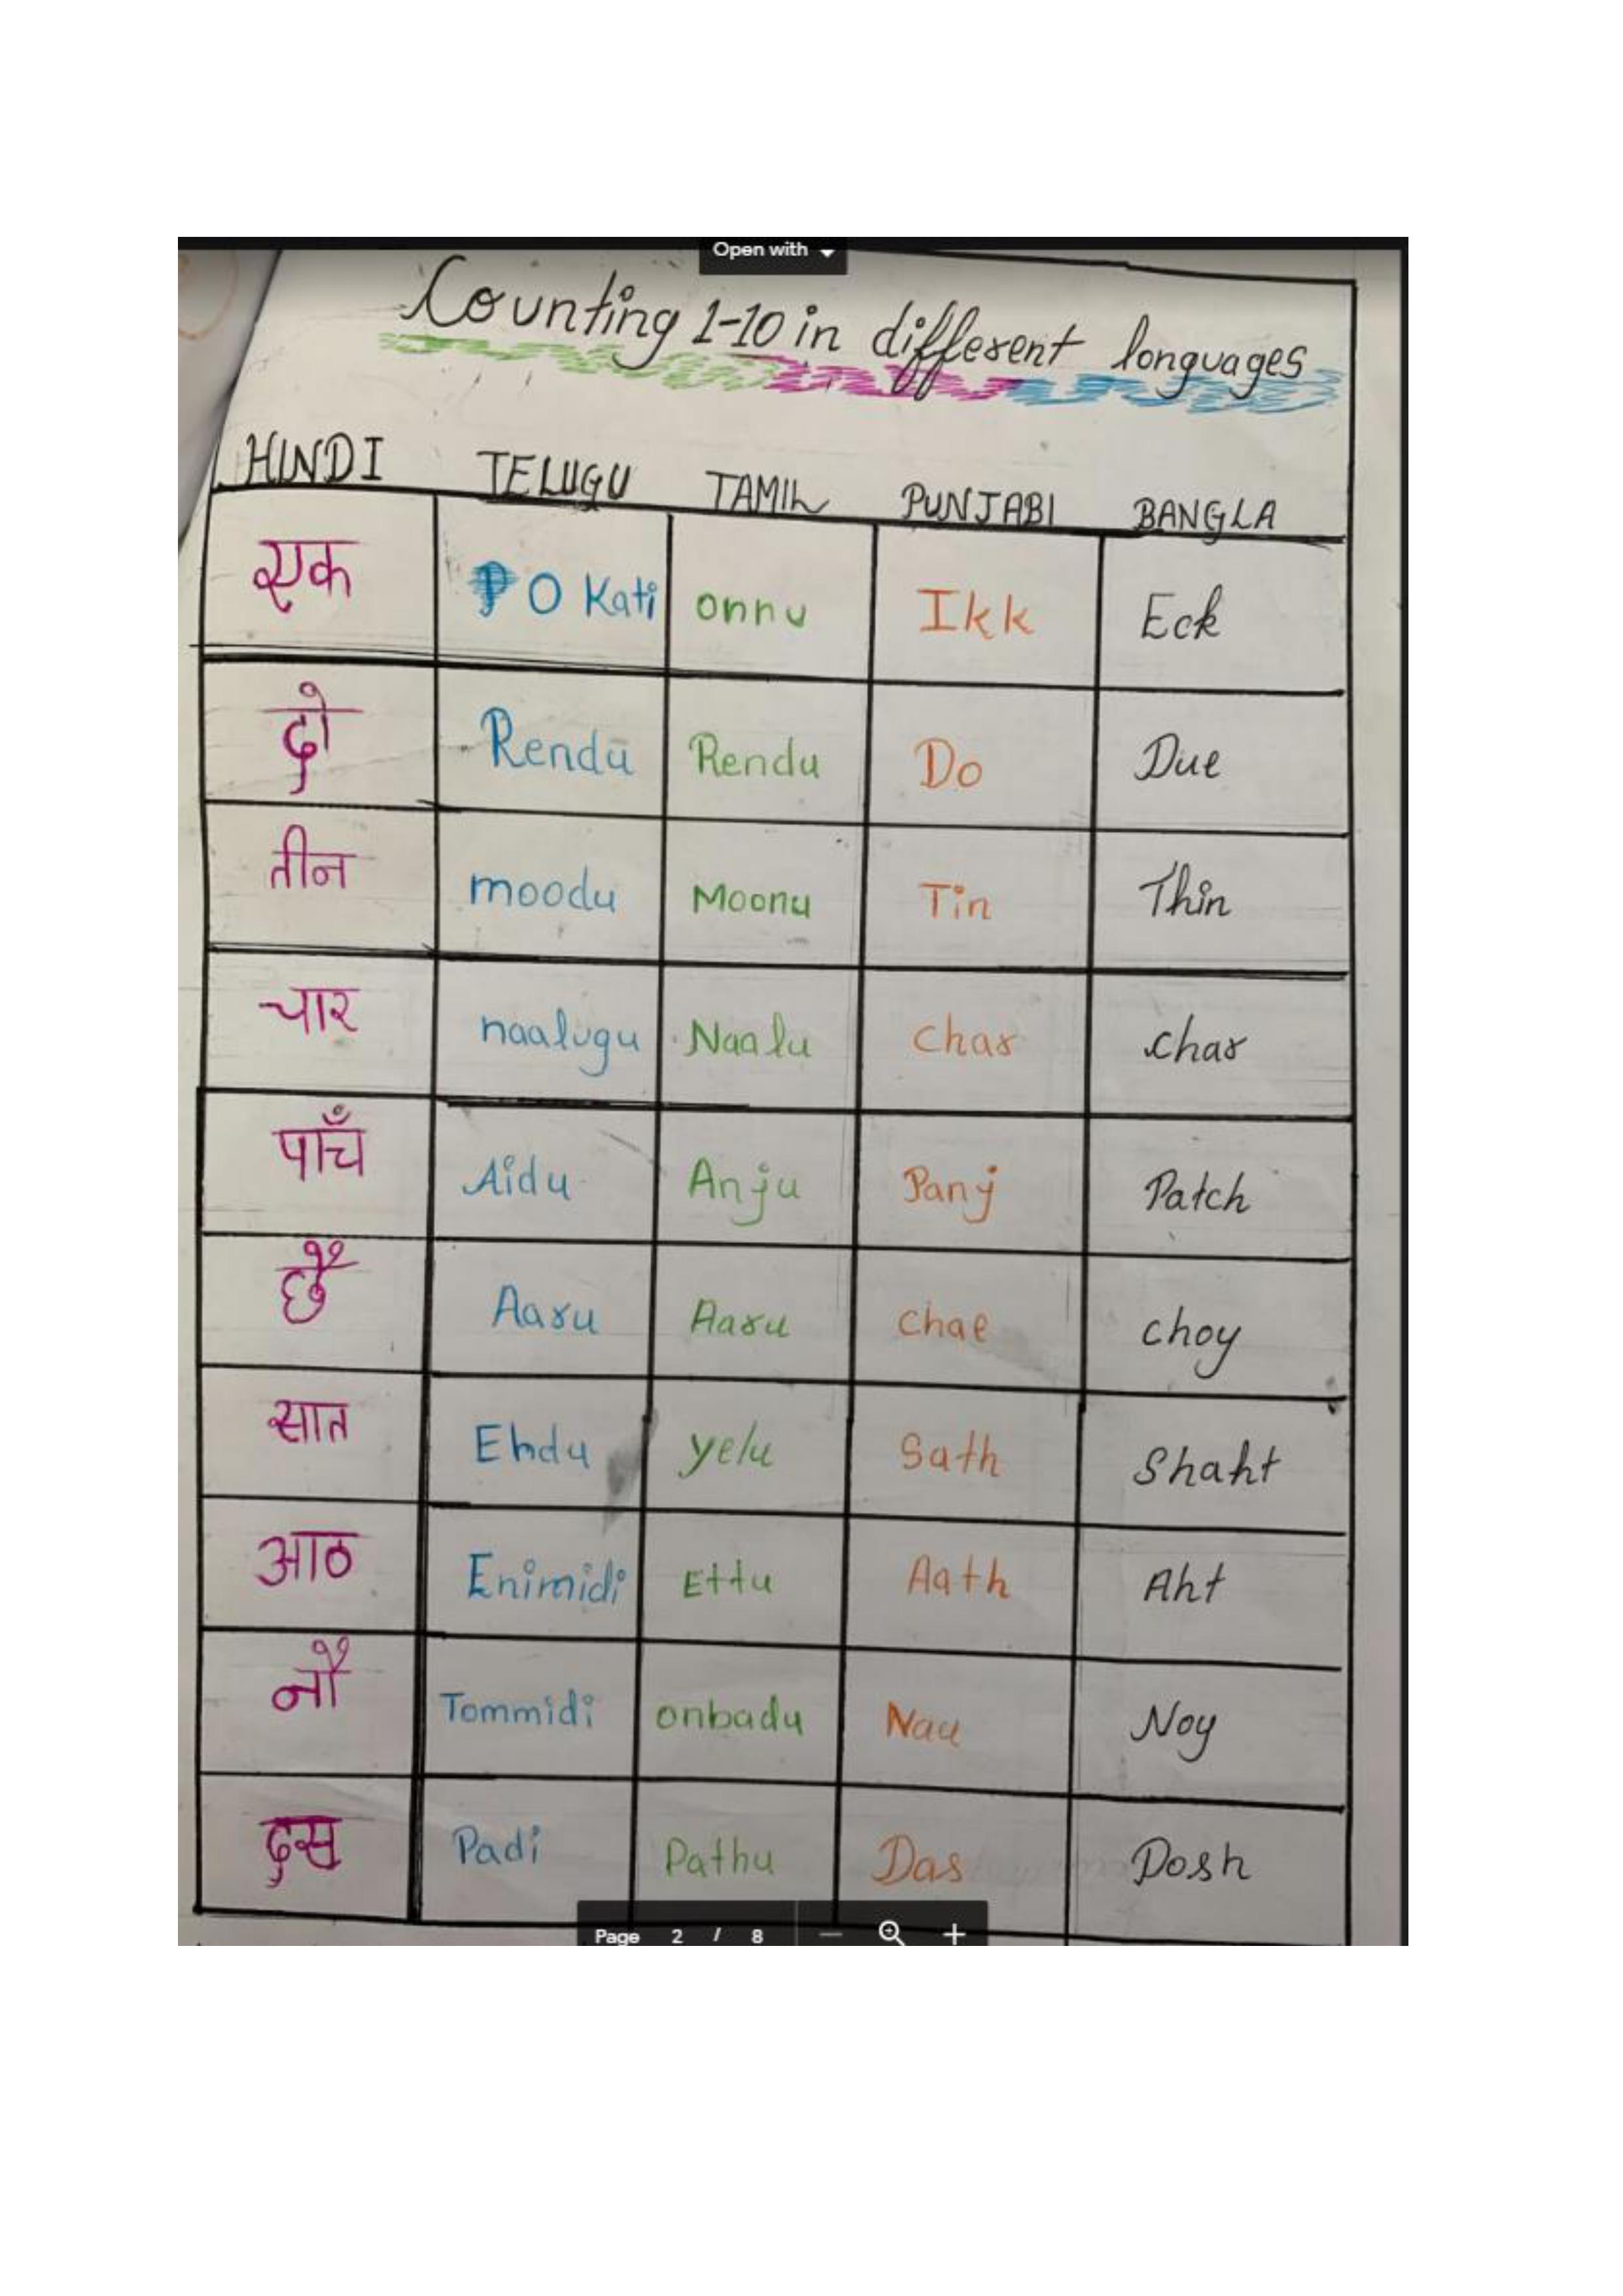 Open with
Counting 1-10 in different longuages
HINDI TELUGU TAMIL PUNJABI BANGLA
एक O Kati onnu Ikk Eck
दो Rendu Rendu Do Due
तीन moodu Moonu Tin Thin
चार naalugu Naalu Char char
पाँच Aidu Anju Panj Patch
छै Aaru Aaru Chae choy
सात Ehdu yelu Sath Shaht
आठ Enimidi Ettu Aath Aht
नौ Tommidi onbadu Nau Noy
दस Padi Pathu Das Dosh
Page 2 / 8